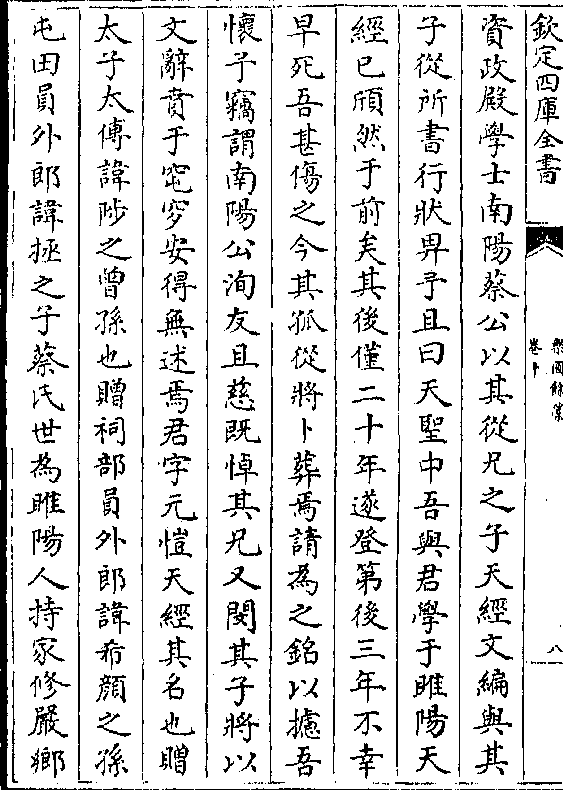 欽定四庫全書
樂圃餘藁
卷十
八
資政殿學士南陽蔡公以其從兄之子天經文編與其
子從所書行狀畀予且曰天聖中吾與君學于睢陽天
經已頎然于前矣其後僅二十年遂登第後三年不幸
早死吾甚傷之今其孤從將卜葬焉請為之銘以攄吾
懷予竊謂南陽公洵友且慈既悼其兄又閔其子將以
文辭賁于窀穸安得無述焉君字元愷天經其名也贈
太子太傅諱陟之曾孫也贈祠部員外郎諱希顔之孫
屯田員外郎諱拯之子蔡氏世為睢陽人持家修嚴鄉